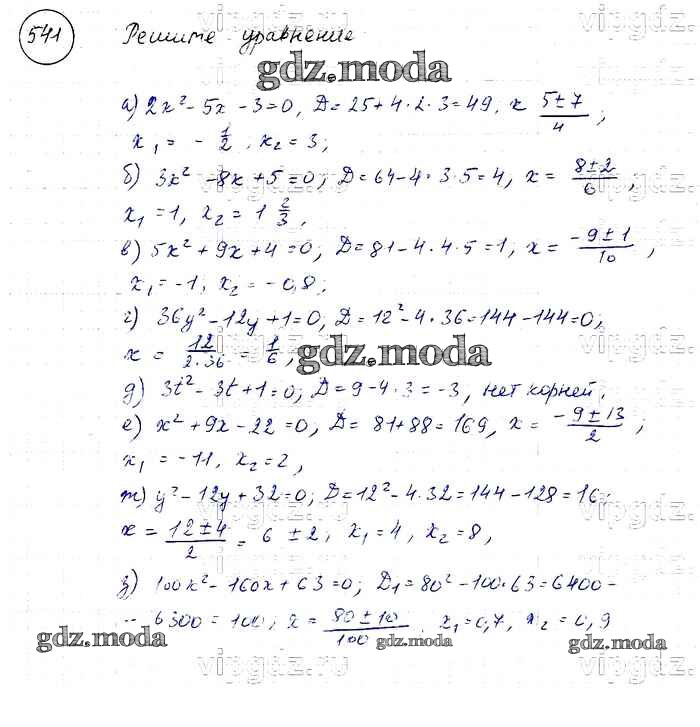 541 Решите уравнение
gdz.moda
а) 2x² - 5x - 3 = 0, D = 25 + 4·2·3 = 49, x (5 ± 7)/4 ;
x₁ = - 1/2, x₂ = 3;
б) 3x² - 8x + 5 = 0; D = 64 - 4·3·5 = 4, x = (8 ± 2)/6 ,
x₁ = 1, x₂ = 1 2/3,
в) 5x² + 9x + 4 = 0; D = 81 - 4·4·5 = 1, x = (-9 ± 1)/10 ,
x₁ = -1, x₂ = -0,8;
г) 36y² - 12y + 1 = 0; D = 12² - 4·36 = 144 - 144 = 0;
x = 12/(2·36) = 1/6,
gdz.moda
д) 3t² - 3t + 1 = 0; D = 9 - 4·3 = -3, нет корней.
е) x² + 9x - 22 = 0, D = 81 + 88 = 169, x = (-9 ± 13)/2 ;
x₁ = -11, x₂ = 2,
ж) y² - 12y + 32 = 0; D = 12² - 4·32 = 144 - 128 = 16;
x = (12 ± 4)/2 = 6 ± 2, x₁ = 4, x₂ = 8,
з) 100x² - 160x + 63 = 0; D₁ = 80² - 100·63 = 6400 -
- 6300 = 100; x = (80 ± 10)/100, x₁ = 0,7, x₂ = 0,9
gdz.moda gdz.moda gdz.moda
vipgdz.ru